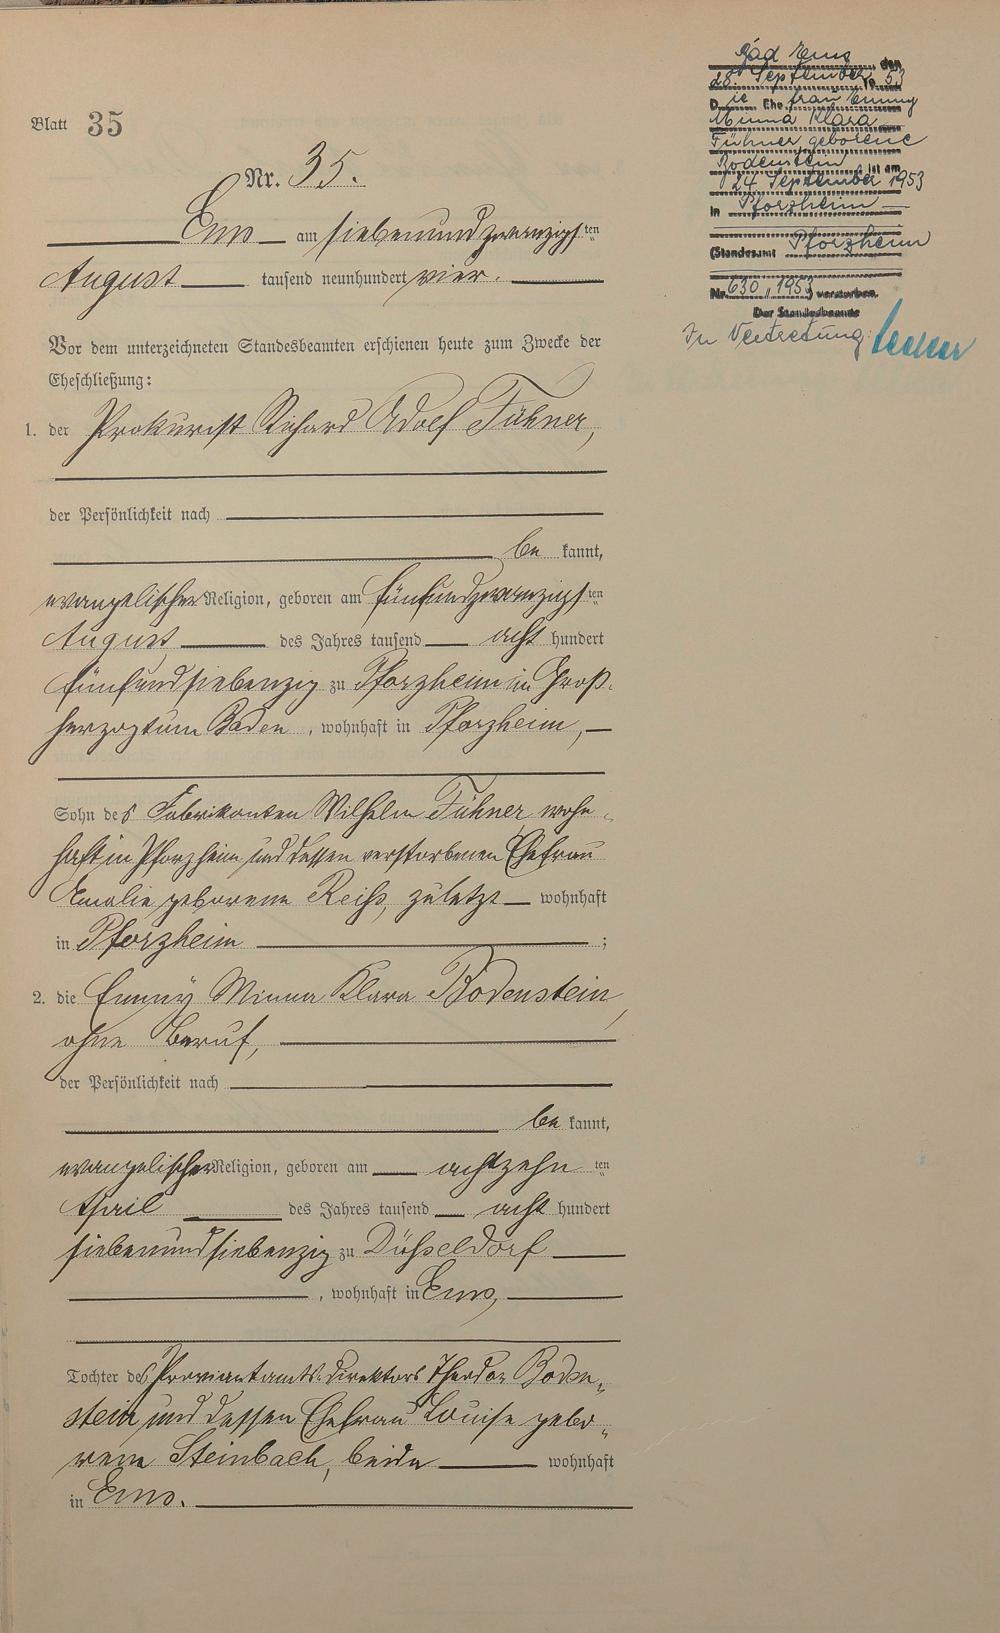 Blatt 35
Nr. 35.
Ems am siebenundzwanzigsten
August tausend neunhundert vier.
Vor dem unterzeichneten Standesbeamten erschienen heute zum Zwecke der
Eheschließung:
1. der Prokurist Richard Adolf Fühner,
der Persönlichkeit nach
be kannt,
evangelischer Religion, geboren am fünfundzwanzigsten
August des Jahres tausend acht hundert
fünfundsiebenzig zu Pforzheim im Groß-
herzogtum Baden, wohnhaft in Pforzheim,
Sohn des Fabrikanten Wilhelm Fühner, wohn-
haft in Pforzheim und dessen verstorbenen Ehefrau
Amalie geborene Reiß, zuletzt wohnhaft
in Pforzheim ;
2. die Emmy Minna Klara Bodenstein,
ohne Beruf,
der Persönlichkeit nach
be kannt,
evangelischer Religion, geboren am achtzehn ten
April des Jahres tausend acht hundert
siebenundsiebenzig zu Düsseldorf
, wohnhaft in Ems,
Tochter des Proviantamts-direktors Theodor Boden-
stein und dessen Ehefrau Louise gebo-
rene Steinbach, beide wohnhaft
in Ems.
Bad Ems den
28. September 1953
Die Ehefrau Emmy
Minna Klara
Fühner geborene
Bodenstein ist am
24 September 1953
in Pforzheim
(Standesamt Pforzheim
Nr. 630, 1953) verstorben.
Der Standesbeamte
In Vertretung: